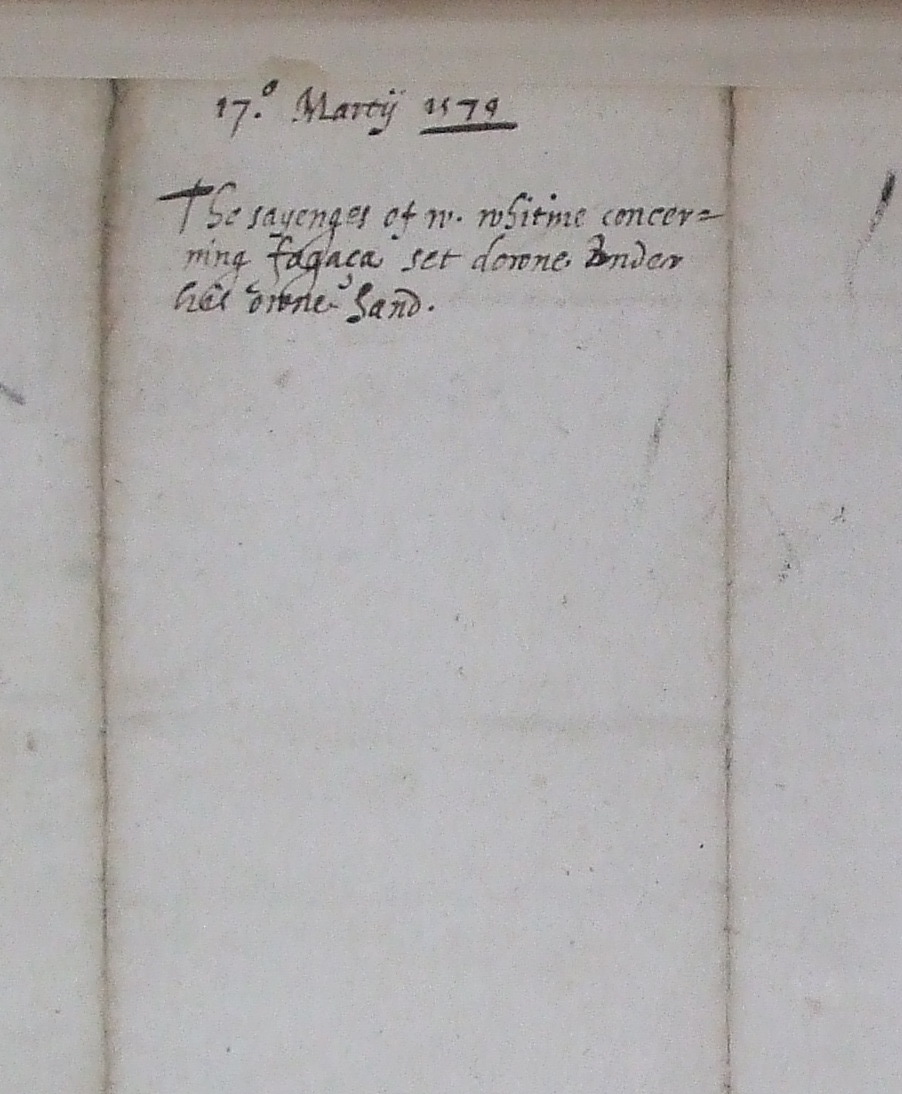 17.º Martij 1579
The sayenges of w. whitine concer=
ning fogaca set downe vnder
his owne hand.